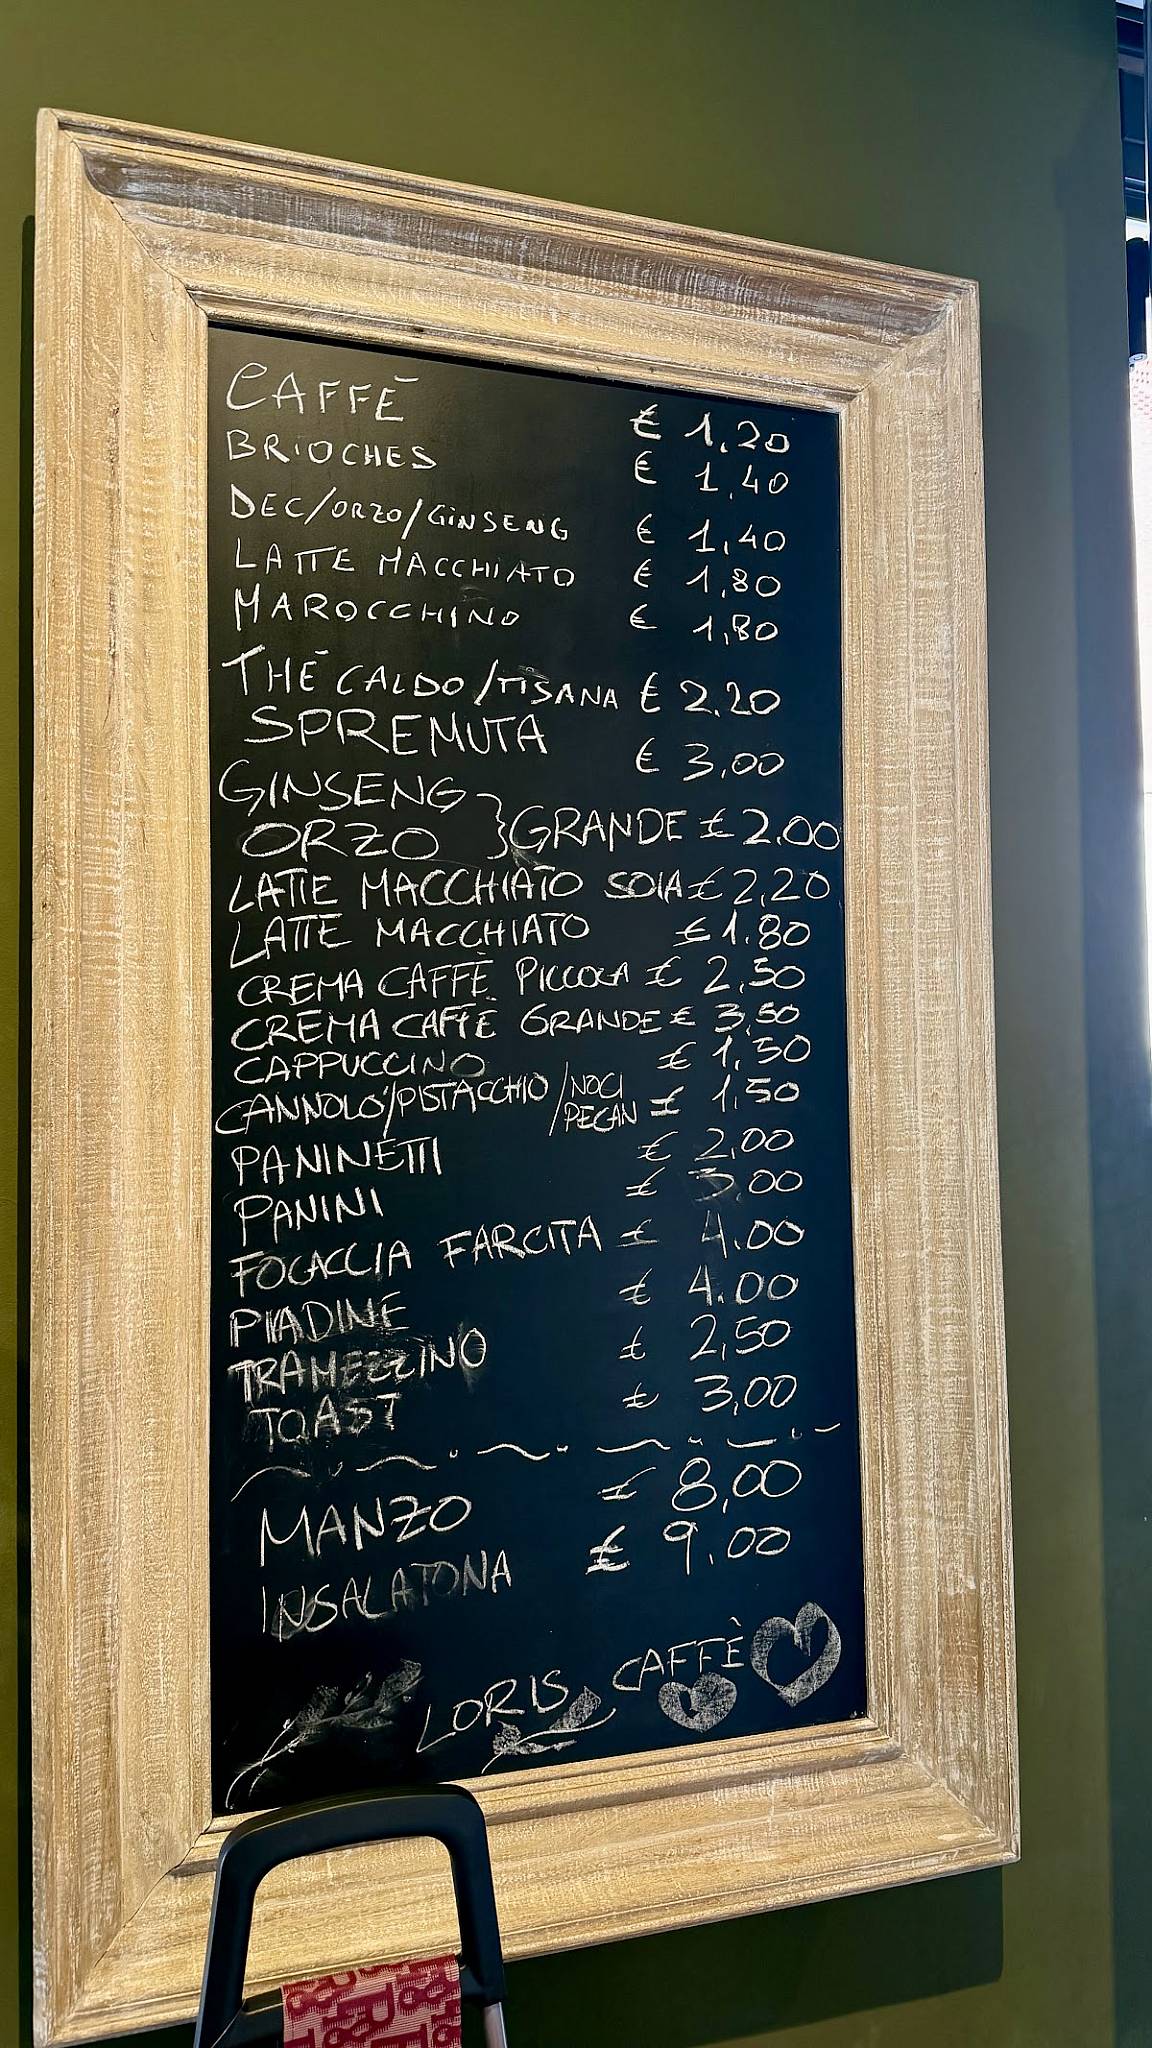 CAFFÈ € 1,20
BRIOCHES € 1,40
DEC/ORZO/GINSENG € 1,40
LATTE MACCHIATO € 1,80
MAROCCHINO € 1,80
THÉ CALDO/TISANA € 2.20
SPREMUTA € 3,00
GINSENG
ORZO } GRANDE € 2.00
LATTE MACCHIATO SOIA € 2,20
LATTE MACCHIATO € 1.80
CREMA CAFFÈ PICCOLA € 2,50
CREMA CAFFÈ GRANDE € 3,50
CAPPUCCINO € 1,50
CANNOLO/PISTACCHIO/NOCI PECAN € 1,50
PANINETTI € 2,00
PANINI € 3.00
FOCACCIA FARCITA € 4.00
PIADINE € 4.00
TRAMEZZINO € 2,50
TOAST € 3,00
MANZO € 8,00
INSALATONA € 9.00
LORIS CAFFÈ